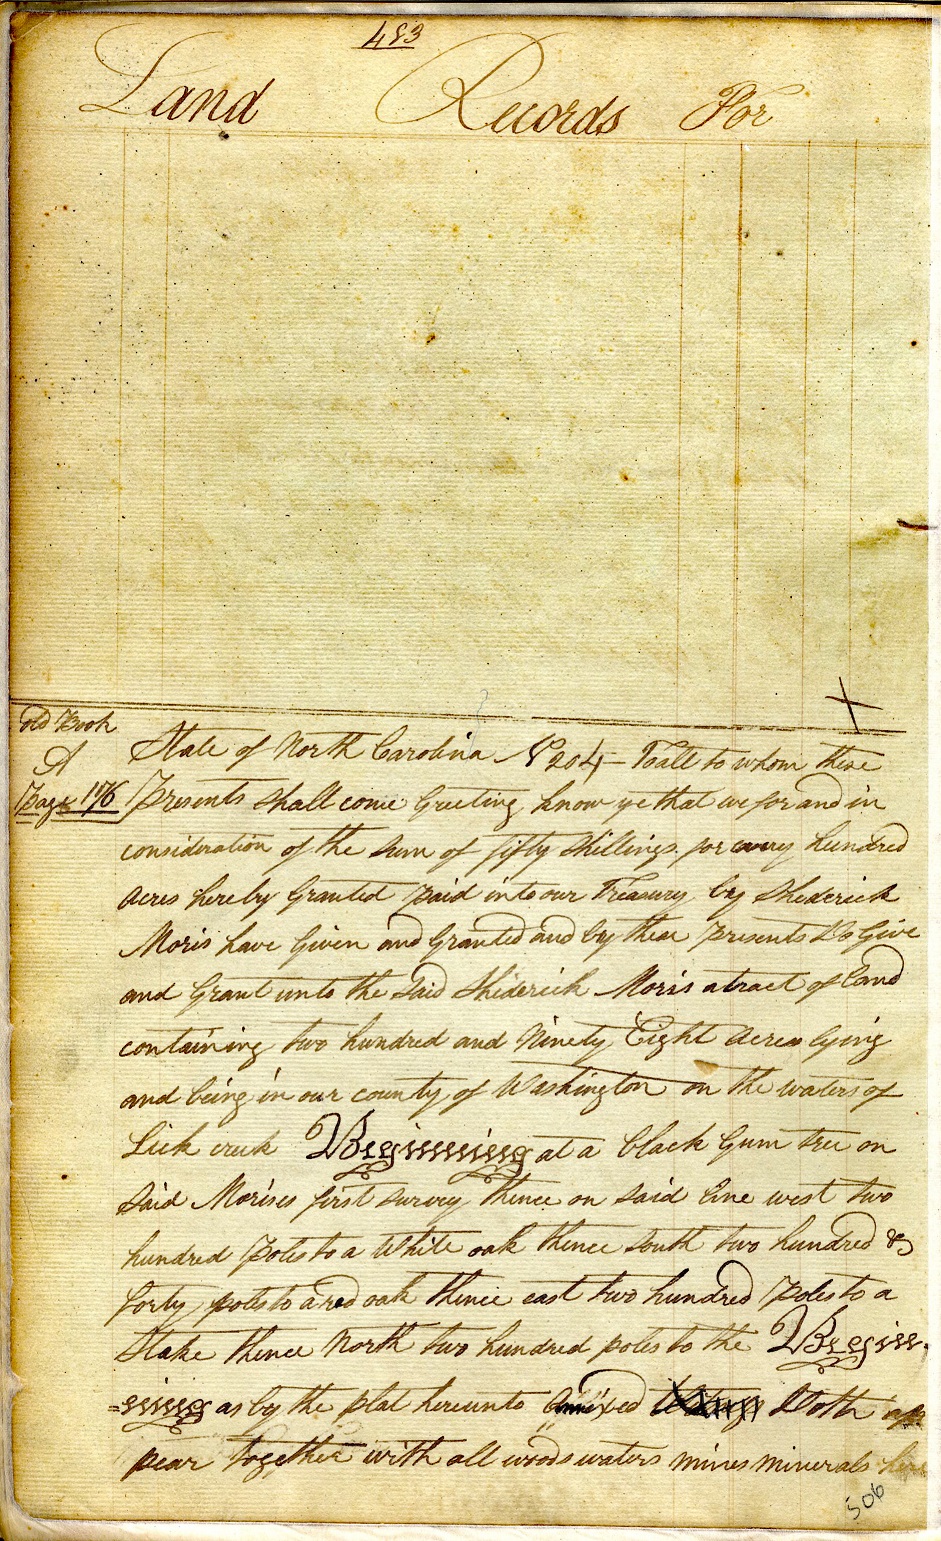 483
Land Records For
old Book
A
Page 176
State of North Carolina No 204 – To all to whom these
Presents shall come Greeting know ye that we for and in
consideration of the sum of fifty shillings for every hundred
acres hereby Granted paid into our Treasury by Shederick
Moris have Given and Granted and by these presents Do Give
and Grant unto the said Shiderick Moris a tract of Land
containing two hundred and Ninety Eight acres lying
and being in our county of Washington on the waters of
Lick creek Beginning at a black Gum tree on
said Morises first survey thence on said line west two
hundred Poles to a White oak thence south two hundred &
forty poles to a red oak thence east two hundred Poles to a
Stake thence North two hundred poles to the Begin-
=ning as by the plat hereunto annixed Doth ap
pear together with all woods waters mines minerals here
506